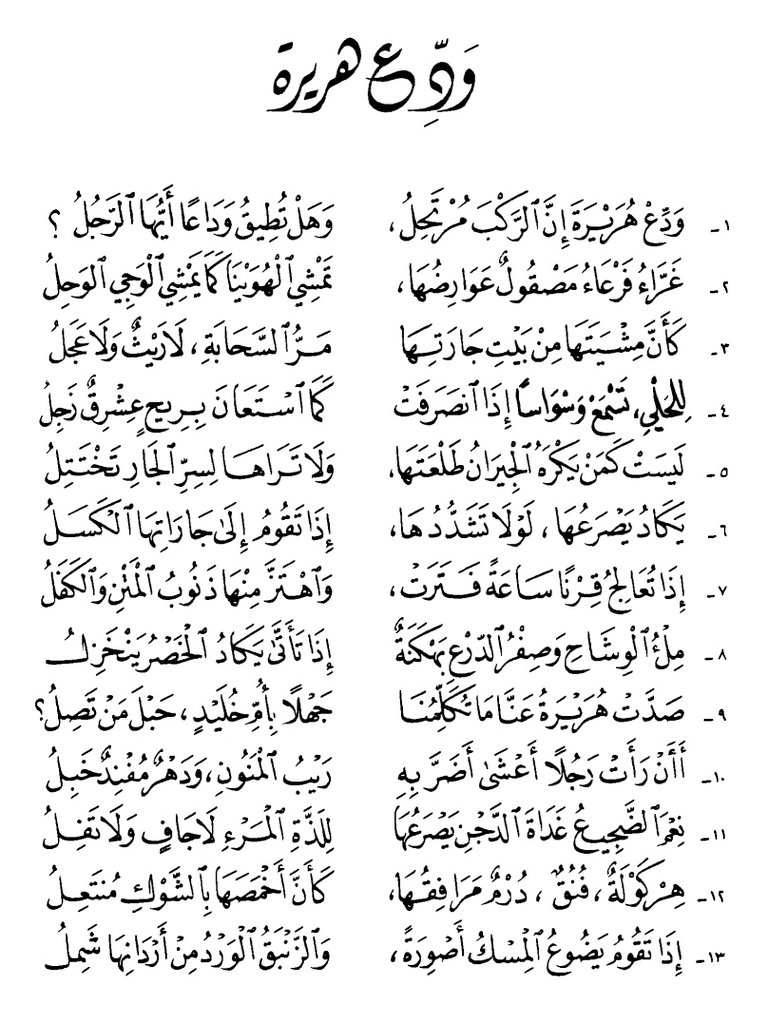 وَدِّع هريرة
١- وَدِّعْ هُرَيْرَةَ إِنَّ ٱلرَّكْبَ مُرْتَحِلُ، وَهَلْ تُطِيقُ وَدَاعًا أَيُّهَا ٱلرَّجُلُ ؟
٢- غَرَّاءُ فَرْعَاءُ مَصْقُولٌ عَوَارِضُهَا، تَمْشِي ٱلْهُوَيْنَا كَمَا يَمْشِي ٱلْوَجِي ٱلوَحِلُ
٣- كَأَنَّ مِشْيَتَهَا مِنْ بَيْتِ جَارَتِهَا مَرُّ ٱلسَّحَابَةِ، لَا رَيْثٌ وَلَا عَجَلُ
٤- لِلحَلْيِ، تَسْمَعْ وَسْوَاسًا إِذَا ٱنصَرَفَتْ كَمَا ٱسْتَعَانَ بِرِيحٍ عِشْرِقٌ زَجِلُ
٥- لَيسَتْ كَمَنْ يَكْرَهُ ٱلْجِيرَانُ طَلْعَتَهَا، وَلَا تَرَاهَا لِسِرِّ ٱلْجَارِ تَخْتَتِلُ
٦- يَكَادُ يَصْرَعُهَا، لَوْلَا تَشَدُّدُهَا، إِذَا تَقُومُ إِلَىٰ جَارَاتِهَا ٱلْكَسَلُ
٧- إِذَا تُعَالِجُ قِرْنًا سَاعَةً فَتَرَتْ، وَٱهْتَزَّ مِنْهَا ذَنُوبُ ٱلْمَتْنِ وَٱلكَفَلُ
٨- مِلْءُ ٱلْوِشَاحِ وَصِفْرُ ٱلدِّرْعِ بَهْكَنَةٌ إِذَا تَأَتَّىٰ يَكَادُ ٱلْخَصْرُ يَنْخَزِلُ
٩- صَدَّتْ هُرَيْرَةُ عَنَّا مَا تُكَلِّمُنَا جَهْلًا بِأُمِّ خُلَيْدٍ، حَبْلَ مَنْ تَصِلُ؟
١٠- أَأَنْ رَأَتْ رَجُلًا أَعْشَىٰ أَضَرَّ بِهِ رَيْبُ ٱلْمَنُونِ، وَدَهْرٌ مُفْنِدٌ خَبِلُ
١١- نِعْمَ ٱلضَّجِيعُ غَدَاةَ ٱلدَّجْنِ يَصْرَعُهَا لِلَذَّةِ ٱلْمَرْءِ لَا جَافٍ وَلَا تَفِلُ
١٢- هِرْكَوْلَةٌ، فُنُقٌ، دُرْمٌ مَرَافِقُهَا، كَأَنَّ أَخْمَصَهَا بِٱلشَّوْكِ مُنتَعِلُ
١٣- إِذَا تَقُومُ يَضُوعُ ٱلْمِسْكُ أَصْوِرَةً، وَٱلزَّنْبَقُ ٱلْوَرْدُ مِنْ أَرْدَانِهَا شَمِلُ